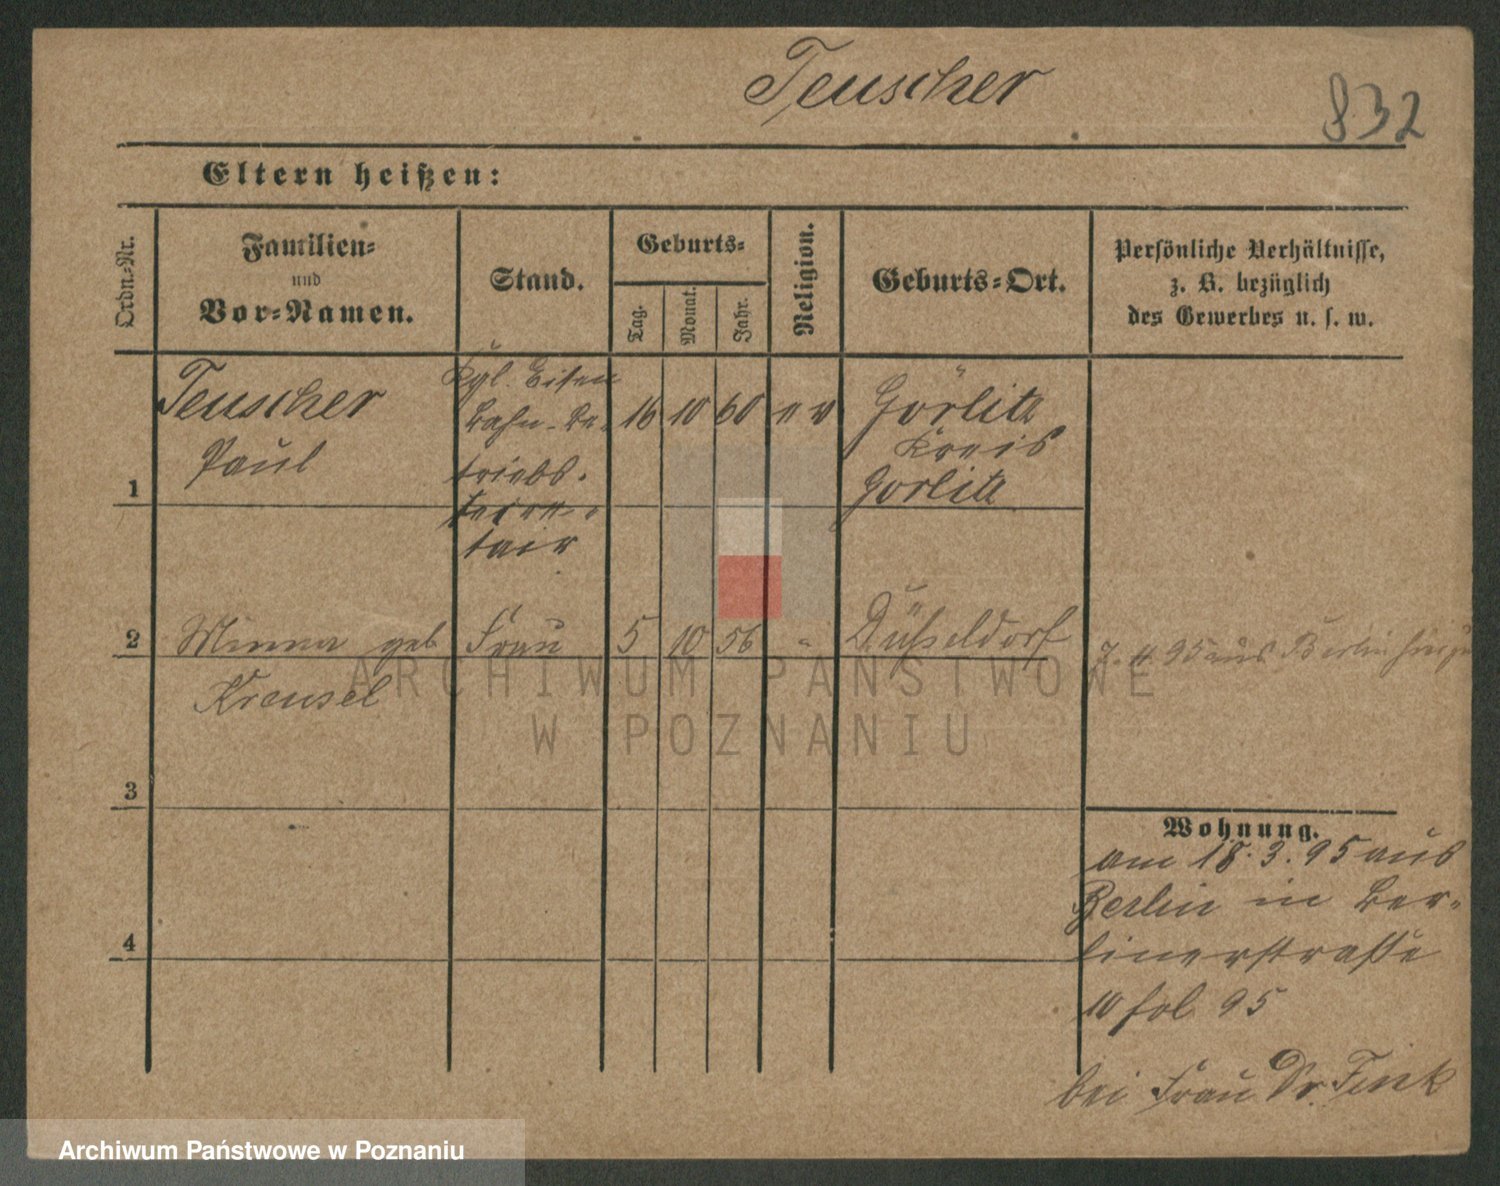 Teuscher
832
Eltern heißen:
Ordn.-Nr.
Familien-
und
Vor-Namen.
Stand.
Geburts-
Tag.
Monat.
Jahr.
Religion.
Geburts-Ort.
Persönliche Verhältnisse,
z. B. bezüglich
des Gewerbes u. s. w.
1
Teuscher
Paul
Kgl. Eisen
bahn-Be-
triebs-
tair
16
10
60
ev
Görlitz
Kreis
Görlitz
2
Minna geb
Kreusel
Frau
5
10
56
"
Düsseldorf
95 aus Berlin
3
4
Wohnung.
am 18.3.95 aus
Berlin in Ber-
linerstraße
10 fol 95
bei Frau Dr. Fink
ARCHIWUM PAŃSTWOWE
W POZNANIU
Archiwum Państwowe w Poznaniu